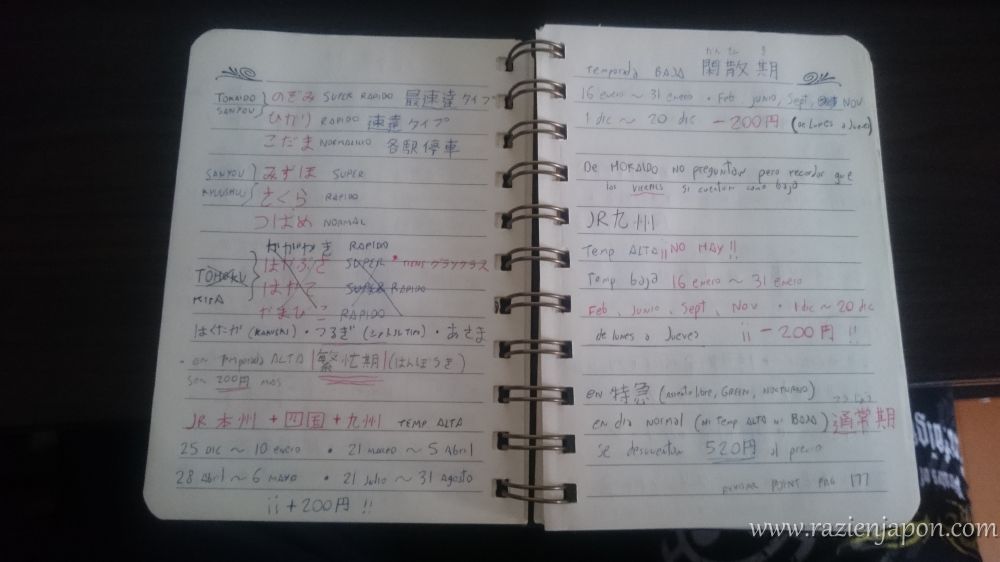 TOKAIDO SANYOU } のぞみ SUPER RAPIDO 最速達タイプ
ひかり RAPIDO 速達タイプ
こだま NORMALILLO 各駅停車
SANYOU KYUUSHUU } みずほ SUPER
さくら RAPIDO
つばめ NORMAL
かがやき RAPIDO
TOHOKU } はやぶさ SUPER * TIENE グランクラス
はやて SUPER RAPIDO
KITA
やまびこ RAPIDO
はくたか (KAKUSHI) · つるぎ (シャトル TIPO) · あさま
· en Temporada ALTA |繁忙期| (はんぼうき)
son 200円 mas
JR 本州 + 四国 + 九州 TEMP ALTA
25 DIC ~ 10 enero · 21 MARZO ~ 5 Abril
28 Abril ~ 6 MAYO · 21 Julio ~ 31 Agosto
¡¡ +200円 !!
かん さん き
Temporada BAJA 閑散期
16 enero ~ 31 enero · Feb, Junio, Sept, NOV
1 dic ~ 20 dic -200円 (de lunes a Jueves)
De HOKAIDO NO preguntan pero recordar que
los viernes si cuentan como baja
JR九州
Temp ALTA ¡¡NO HAY!!
Temp baja 16 enero ~ 31 enero
Feb, Junio, Sept, Nov · 1 dic ~ 20 dic
de lunes a Jueves ¡¡ -200円 !!
en 特急 (asiento libre, GREEN, NOCTURNO)
en dia normal (ni Temp ALTA ni BAJA) 通常期
se descuentan 520円 al precio
POINT PAG 177
www.razienjapon.com